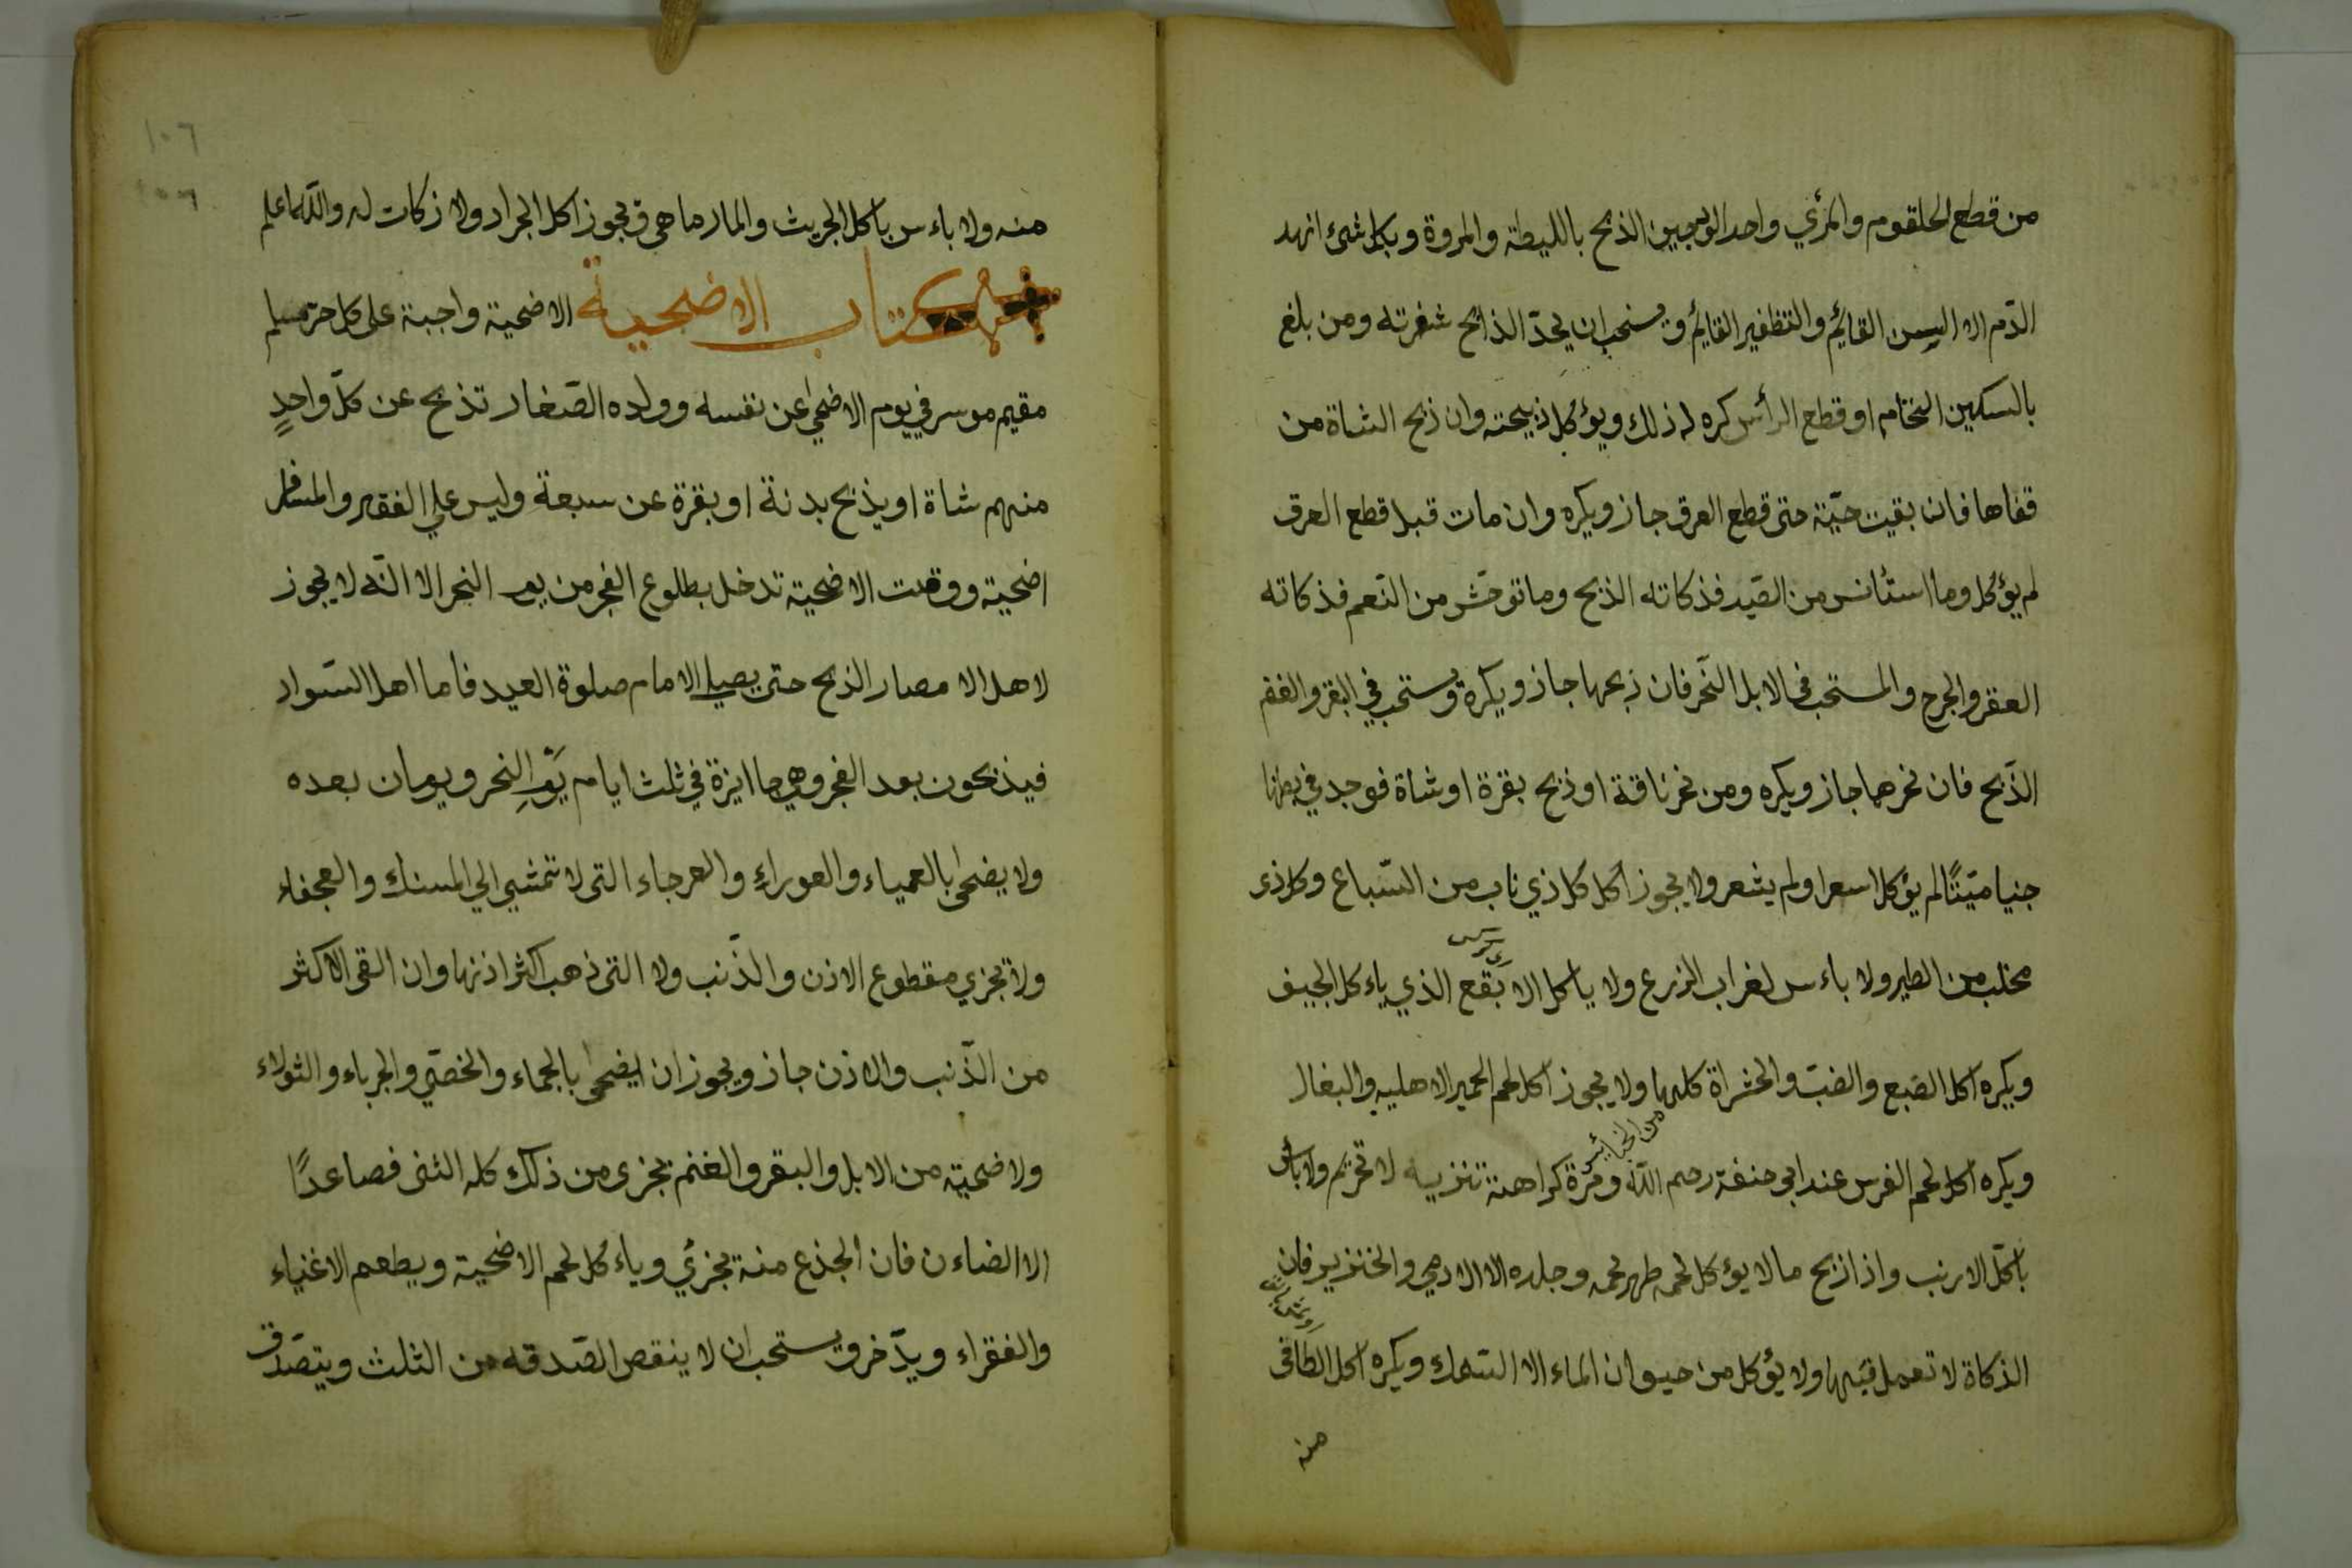 من قطع الحلقوم والمرئي واحد الوجين الذبح بالليطة والمروة وبكل شئ انهد
الدّم الا السن القائم والتظفير القائم ويستحب ان يحدّ الذابح شفرته ومن بلغ
بالسكين النخام او قطع الرأس كره له ذلك ويؤكل ذبيحته وان ذبح الشاة من
قفاها فان بقيت حيّة حتى قطع العرق جاز ويكره وان مات قبل قطع العرق
لم يؤكل وما استئانس من الصّيد فذكاته الذبح وما توحّش من النّعم فذكاته
العقر والجرح والمستحب فى الابل النّحر فان ذبحها جاز ويكره ويستحب في البقر والغنم
الذّبح فان نحرهما جاز ويكره ومن نحر ناقة او ذبح بقرة او شاة فوجد في بطنها
جنيا ميّتًا لم يؤكل اسعر او لم يشعر ولا يجوز اكل كل ذي ناب من السّباع وكل ذى
مخلب من الطير ولا باءس لغراب الزرع ولا ياكل الا بقع الذي ياءكل الجيف
ويكره اكل الضبع والضبّ والحشراة كلها ولا يجوز اكل لحم الحمير الاهليه والبغال
من الخبائس
ويكره اكل لحم الفرس عند ابى حنفة رحم اللّه ومرة كراهة تنزيه لا تحريم ولا بأس
باكل الارنب واذا ذبح مالا يؤكل لحمه طهر لحمه وجلده الا الادمي والخنزير فان
الذكاة لا تعمل فيها ولا يؤكل من حيوان الماء الا السّمك ويكره اكل الطافى
منه
١٠٦
١٠٦
منه ولا باءس باكل الجريث والمارماهى ويجوز اكل الجراد ولا زكات له واللّه اعلم
كتاب الاضحية الاضحية واجبة على كل حرّ مسلم
مقيم موسر في يوم الاضحى عن نفسه وولده الصّغار تذبح عن كلّ واحدٍ
منهم شاة او يذبح بدنة او بقرة عن سبعة وليس على الفقير والمسافر
اضحية ووقت الاضحية تدخل بطلوع الفجر من يوم النحر الا انّه لا يجوز
لاهل الا مصار الذبح حتى يصلى الامام صلوة العيد فاما اهل السّواد
فيذبحون بعد الفجر وهي جاايزة في ثلث ايام يَوْمِ النحر ويومان بعده
ولا يضحى بالعمياء والعوراءِ والعرجاء التى لا تمشي الي المسنك والعجفاء
ولا تجزي مقطوع الاذن والذّنب ولا التى ذهب اكثر اذنها وان القى الاكثر
من الذّنب والاذن جاز ويجوز ان ايضحى بالجماء والخصّي والجرباء والثولاء
ولاضحيّة من الابل والبقر والغنم يجزى من ذلك كله الثنى فصاعدًا
الا الضاءن فان الجذع منة يجزئي وياءكل لحم الاضحية ويطعم الاغنياء
والفقراء ويدّخر ويستحب ان لا ينقص الصّدقه من الثلث ويتصّدق